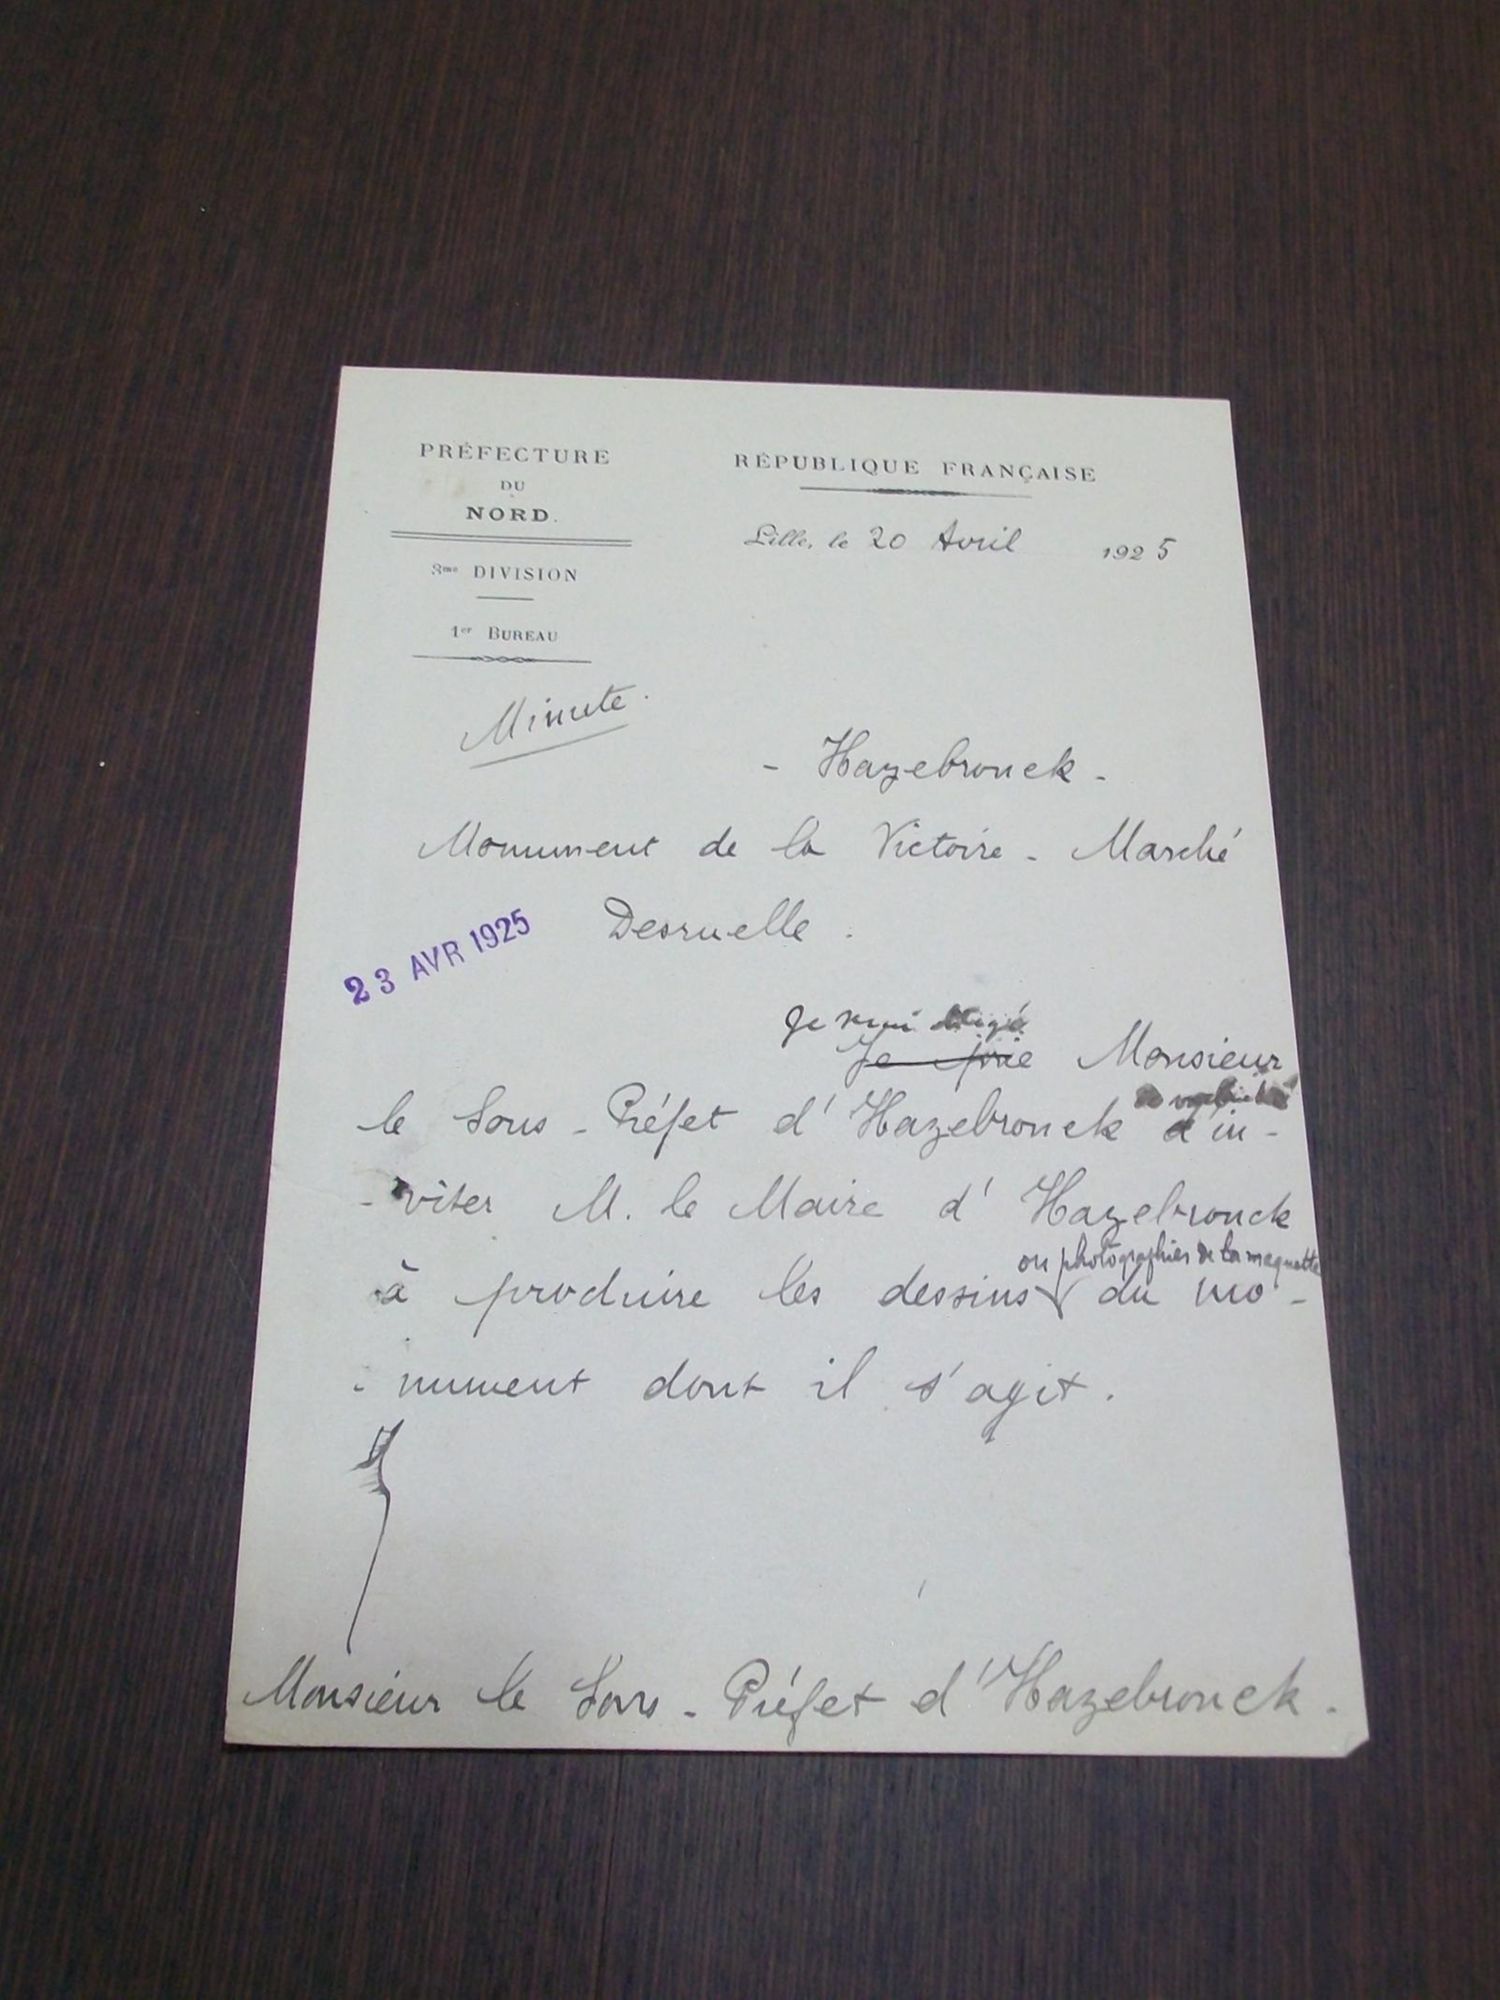 PRÉFECTURE
DU
NORD.
3me DIVISION
1er BUREAU
RÉPUBLIQUE FRANÇAISE
Lille, le 20 Avril 1925
Minute.
- Hazebrouck -
Monument de la Victoire - Marché
Desruelle.
23 AVR 1925
Je
Je prie Monsieur
le Sous-Préfet d'Hazebrouck d'in-
-viter M. le Maire d'Hazebrouck
ou photographies de la maquette
à produire les dessins du mo-
-nument dont il s'agit.
Monsieur le Sous-Préfet d'Hazebrouck.